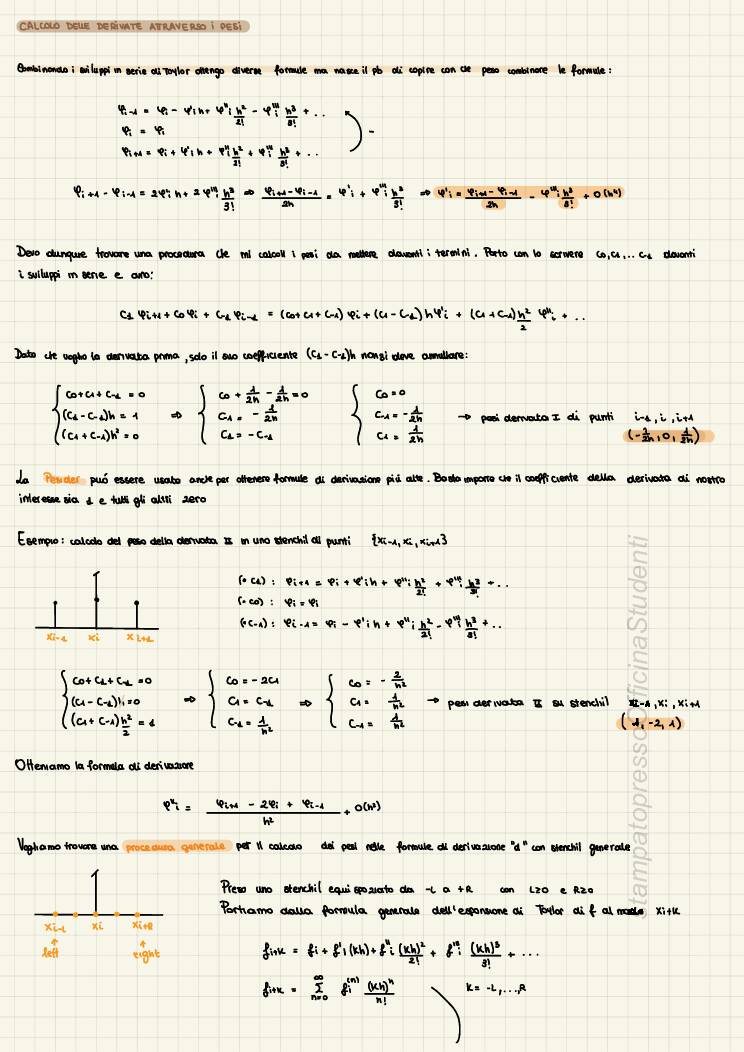 CALCOLO DELLE DERIVATE ATRAVERSO I PESI
Combinando i sviluppi in serie di Taylor ottengo diverse formule ma nasce il pb di capire con che peso combinare le formule:
φi-1 = φi - φ'i h + φ''i h²/2! - φ'''i h³/3! + ..
φi = φi
φi+1 = φi + φ'i h + φ''i h²/2! + φ'''i h³/3! + ..
-
φi+1 - φi-1 = 2φ'i h + 2φ'''i h³/3! ⇒ φi+1 - φi-1/2h = φ'i + φ'''i h³/3! ⇒ φ'i = φi+1 - φi-1/2h - φ'''i h³/3! + O(h⁴)
Devo dunque trovare una procedura che mi calcoli i pesi da mettere davanti i termini. Parto con lo scrivere c0,c1,.. c-1 davanti
i sviluppi in serie e avrò:
C1 φi+1 + C0 φi + C-1 φi-1 = (C0+C1+C-1) φi + (C1-C-1) hφ'i + (C1+C-1) h²/2 φ''i + ..
Dato che voglio la derivata prima, solo il suo coefficiente (C1-C-1)h non si deve annullare:
C0+C1+C-1 = 0 C0 + 1/2h - 1/2h = 0 C0 = 0
(C1-C-1)h = 1 ⇒ C-1 = - 1/2h C-1 = - 1/2h → pesi derivata I di punti i-1, i, i+1
(C1+C-1)h² = 0 C1 = -C-1 C1 = 1/2h (-1/2h, 0, 1/2h)
La Pesider può essere usato anche per ottenere formule di derivazione più alte. Basta imporre che il coefficiente della derivata di nostro
interesse sia 1 e tutti gli altri zero
Esempio: calcolo del peso della derivata II in uno stenchil di punti {xi-1, xi, xi+1}
(• C1): φi+1 = φi + φ'i h + φ''i h²/2! + φ'''i h³/3! + ..
(• C0): φi = φi
(• C-1): φi-1 = φi - φ'i h + φ''i h²/2! - φ'''i h³/3! + ..
xi-1 xi xi+1
C0+C1+C-1 = 0 C0 = -2C1 C0 = - 2/h²
(C1-C-1)h = 0 ⇒ C1 = C-1 ⇒ C1 = 1/h² → pesi derivata II su stenchil xi-1, xi, xi+1
(C1+C-1) h²/2 = 1 C-1 = 1/h² C-1 = 1/h² (1, -2, 1)
Otteniamo la formula di derivazione
φ''i = φi+1 - 2φi + φi-1/h² + O(h²)
Vogliamo trovare una procedura generale per il calcolo dei pesi nelle formule di derivazione "d" con stenchil generale
Preso uno stenchil equispaziato da -L a +R con L≥0 e R≥0
Partiamo dalla formula generale dell'espansione di Taylor di f al xi+k
xi-L xi xi+R
left right
fi+k = fi + f'i (kh) + f''i (kh)²/2! + f'''i (kh)³/3! + ...
fi+k = ∞ Σ n=0 fi(n) (kh)ⁿ/n! k = -L,...,R
stampatopressoOfficinaStudenti